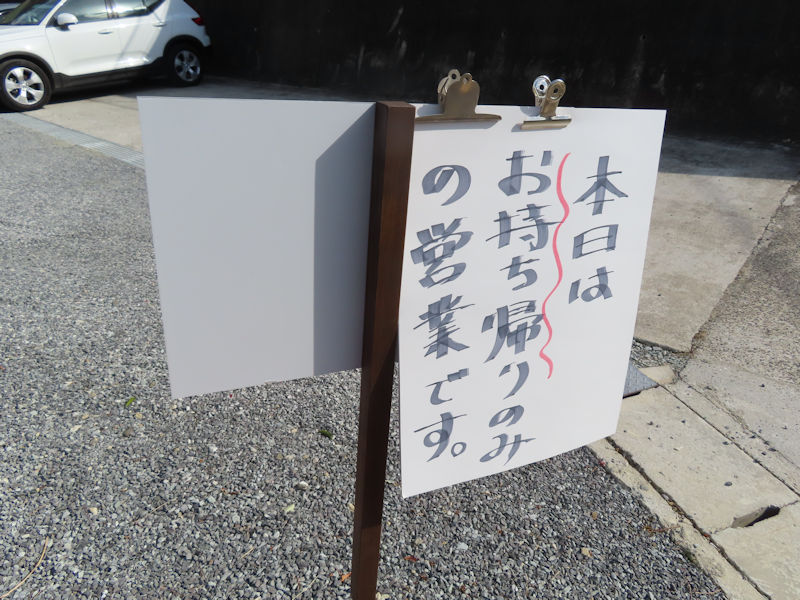 本日は
お持ち帰りのみ
の営業です。